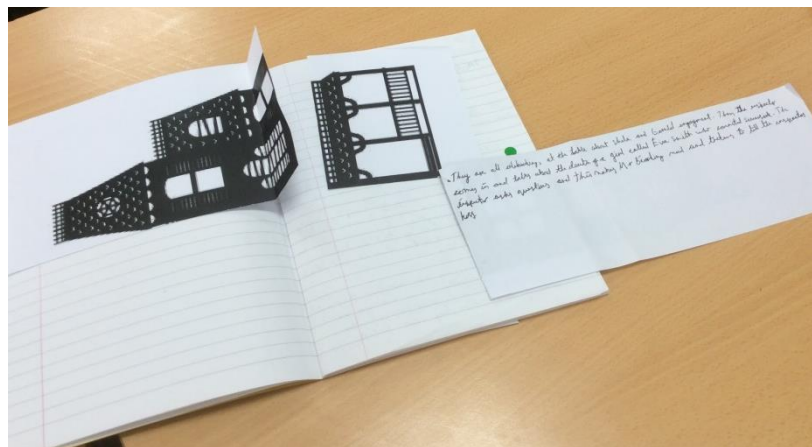 They are all celebrating, at the table about Sheila and Gerald engagement. Then the
comes in and talks about the death of a girl called Eva Smith who commited suicide. The
inspector asks questions and this makes Mr Birling mad and to tell the inspector